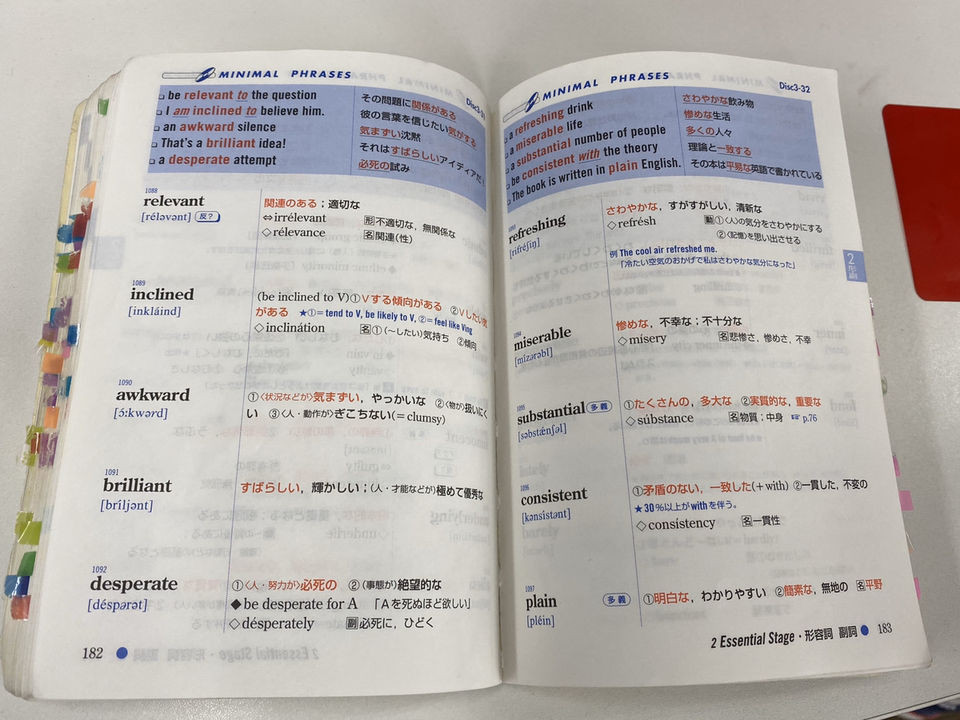 MINIMAL PHRASES
Disc3-31
be relevant to the question
I am inclined to believe him.
an awkward silence
That's a brilliant idea!
a desperate attempt
その問題に関係がある
彼の言葉を信じたい気がする
気まずい沈黙
それはすばらしいアイディアだ!
必死の試み
1088
relevant
[réləvənt] 反?
関連のある；適切な
⇔irrélevant 形不適切な，無関係な
◇rélevance 名関連(性)
1089
inclined
[inkláind]
(be inclined to V)①Vする傾向がある ②Vしたい気
がある ★①＝tend to V, be likely to V, ②＝feel like Ving
◇inclinátion 名①(〜したい)気持ち ②傾向
1090
awkward
[ɔ́ːkwərd]
①〈状況などが〉気まずい，やっかいな ②〈物が〉扱いにく
い ③〈人・動作が〉ぎこちない(＝clumsy)
1091
brilliant
[bríljənt]
すばらしい，輝かしい；〈人・才能などが〉極めて優秀な
1092
desperate
[déspərət]
①〈人・努力が〉必死の ②〈事態が〉絶望的な
◆be desperate for A 「Aを死ぬほど欲しい」
◇désperately 副必死に，ひどく
182
MINIMAL PHRASES
Disc3-32
a refreshing drink
a miserable life
a substantial number of people
be consistent with the theory
The book is written in plain English.
さわやかな飲み物
惨めな生活
多くの人々
理論と一致する
その本は平易な英語で書かれている
1093
refreshing
[rifréʃiŋ]
さわやかな，すがすがしい，清新な
◇refrésh 動①〈人〉の気分をさわやかにする
②〈記憶〉を思い出させる
例 The cool air refreshed me.
「冷たい空気のおかげで私はさわやかな気分になった」
2 形副
1094
miserable
[mízərəbl]
惨めな，不幸な；不十分な
◇misery 名悲惨さ，惨めさ，不幸
1095
substantial 多義
[səbstǽnʃəl]
①たくさんの，多大な ②実質的な，重要な
◇súbstance 名物質；中身 ☞ p.76
1096
consistent
[kənsístənt]
①矛盾のない，一致した(＋with) ②一貫した，不変の
★30％以上がwithを伴う。
◇consistency 名一貫性
1097
plain 多義
[pléin]
①明白な，わかりやすい ②簡素な，無地の 名平野
2 Essential Stage・形容詞 副詞 ● 183